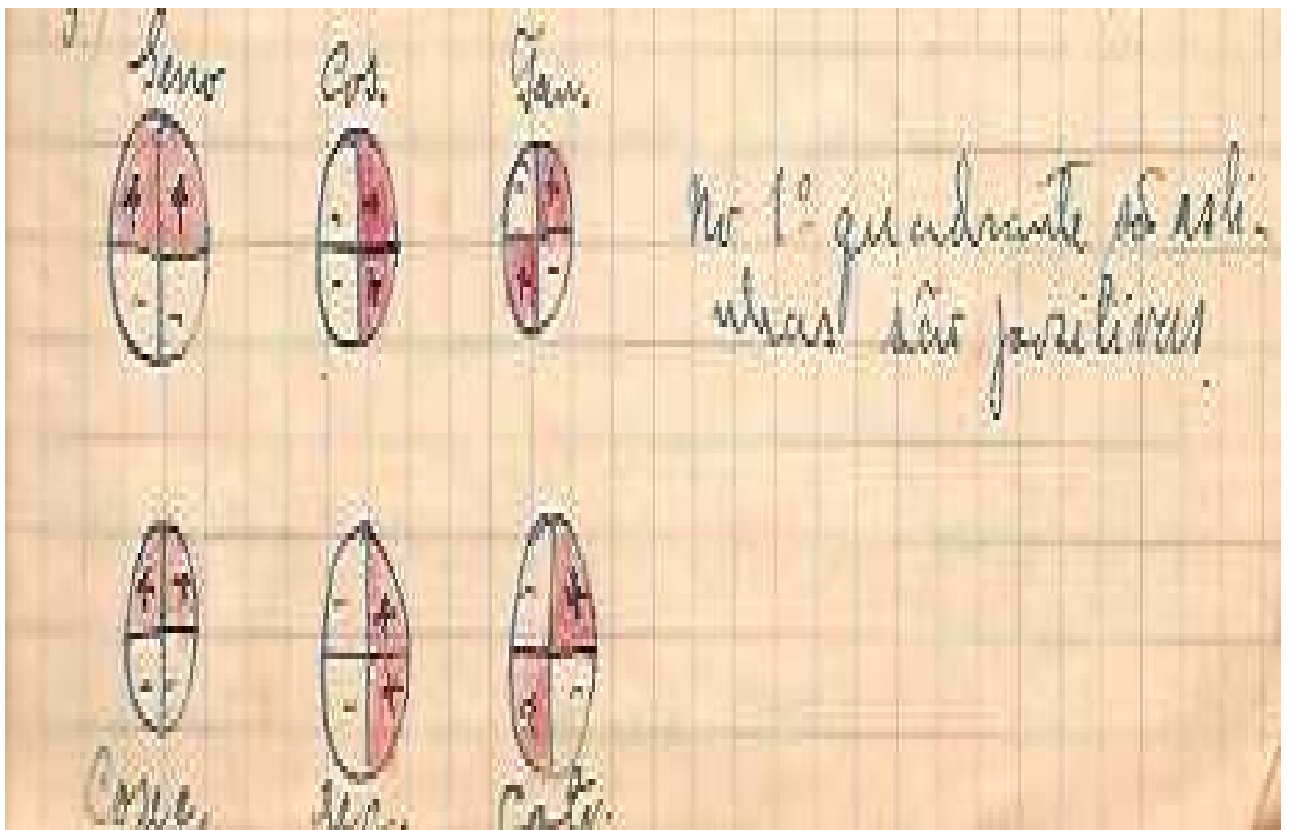 Seno Cos. Tan.
No 1º quadrante
são positivas.
Cosec. sec. Cote.